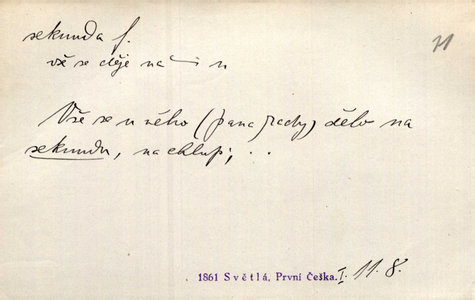 sekunda f.
71
vše se děje na — u
Vše se u něho (pana rady) dělo na
sekundu, na chlup; ..
1861 Světlá, První Češka. I. 11.8.